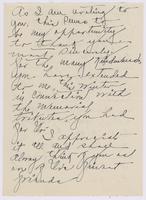 As I am writing to
you, this seems to
be my opportunity
to thank you
most sincerely
for the many kindnesses
you have extended
to me this winter
in connection with
the Memorial
tributes you had
for
I appreciate
it all and shall
always think of you as
one of
friends